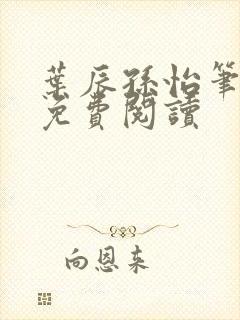 葉辰孫怡筆
免費閱讀
向恩來